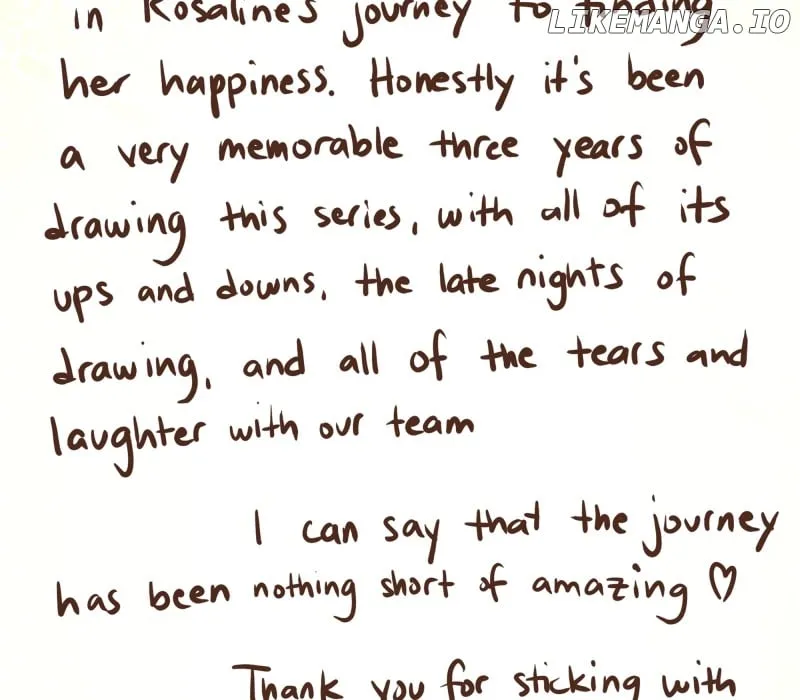 in Rosaline's journey to finding
LIKEMANGA.IO
her happiness. Honestly it's been
a very memorable three years of
drawing this series, with all of its
ups and downs, the late nights of
drawing, and all of the tears and
laughter with our team
I can say that the journey
has been nothing short of amazing ♡
Thank you for sticking with